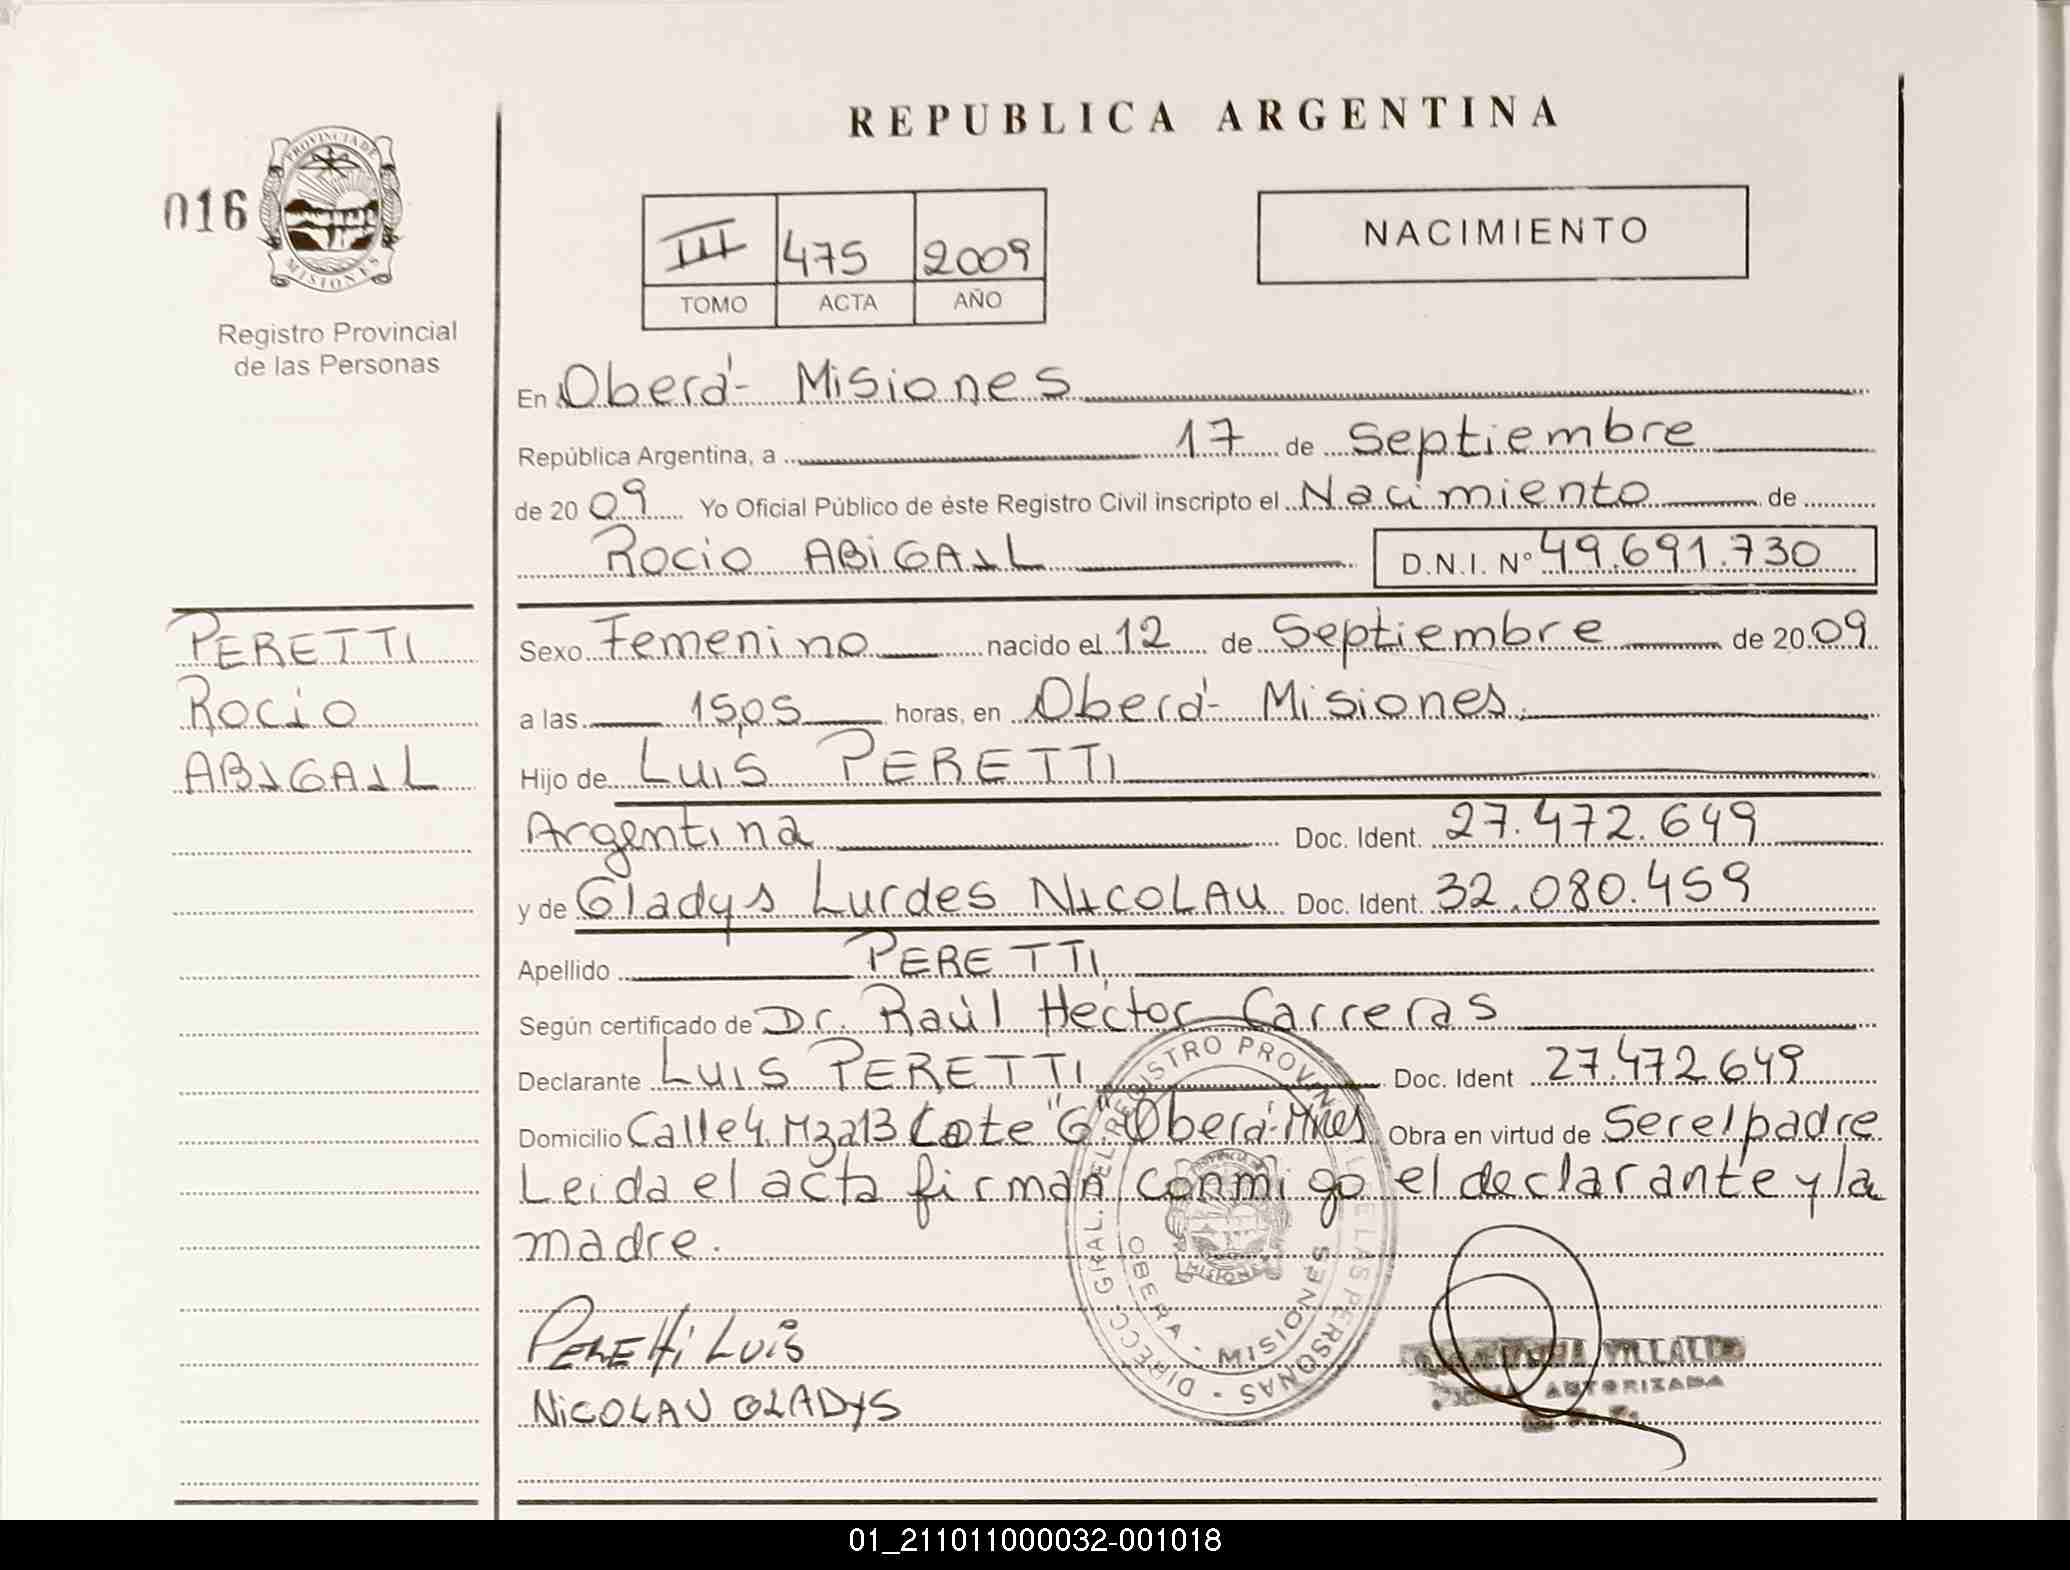 REPUBLICA ARGENTINA
016
PROVINCIA DE
MISIONES
Registro Provincial
de las Personas
III 475 2009
TOMO ACTA AÑO
NACIMIENTO
En Oberá- Misiones
República Argentina, a 17 de Septiembre
de 2009 Yo Oficial Público de éste Registro Civil inscripto el Nacimiento de
ROCIO ABIGAIL D.N.I. Nº 49.691.730
PERETTI
ROCIO
ABIGAIL
Sexo Femenino nacido el 12 de Septiembre de 2009
a las 15,05 horas, en Oberá- Misiones.
Hijo de LUIS PERETTI
Argentina Doc. Ident. 27.472.649
y de Gladys Lurdes NICOLAU Doc. Ident. 32.080.459
Apellido PERETTI
Según certificado de Dr. Raúl Hector Carreras
Declarante LUIS PERETTI Doc. Ident 27.472649
Domicilio Calle 4 Mza13 Lote "G" Oberá-Mnes Obra en virtud de Ser el padre
Leida el acta firman conmigo el declarante y la
madre.
DIRECC. GRAL. DEL REGISTRO PROVINCIAL DE LAS PERSONAS
OBERA - MISIONES
PROVINCIA DE
MISIONES
PERETTI LUIS
NICOLAU GLADYS
VILLALBA
AUTORIZADA
01_211011000032-001018